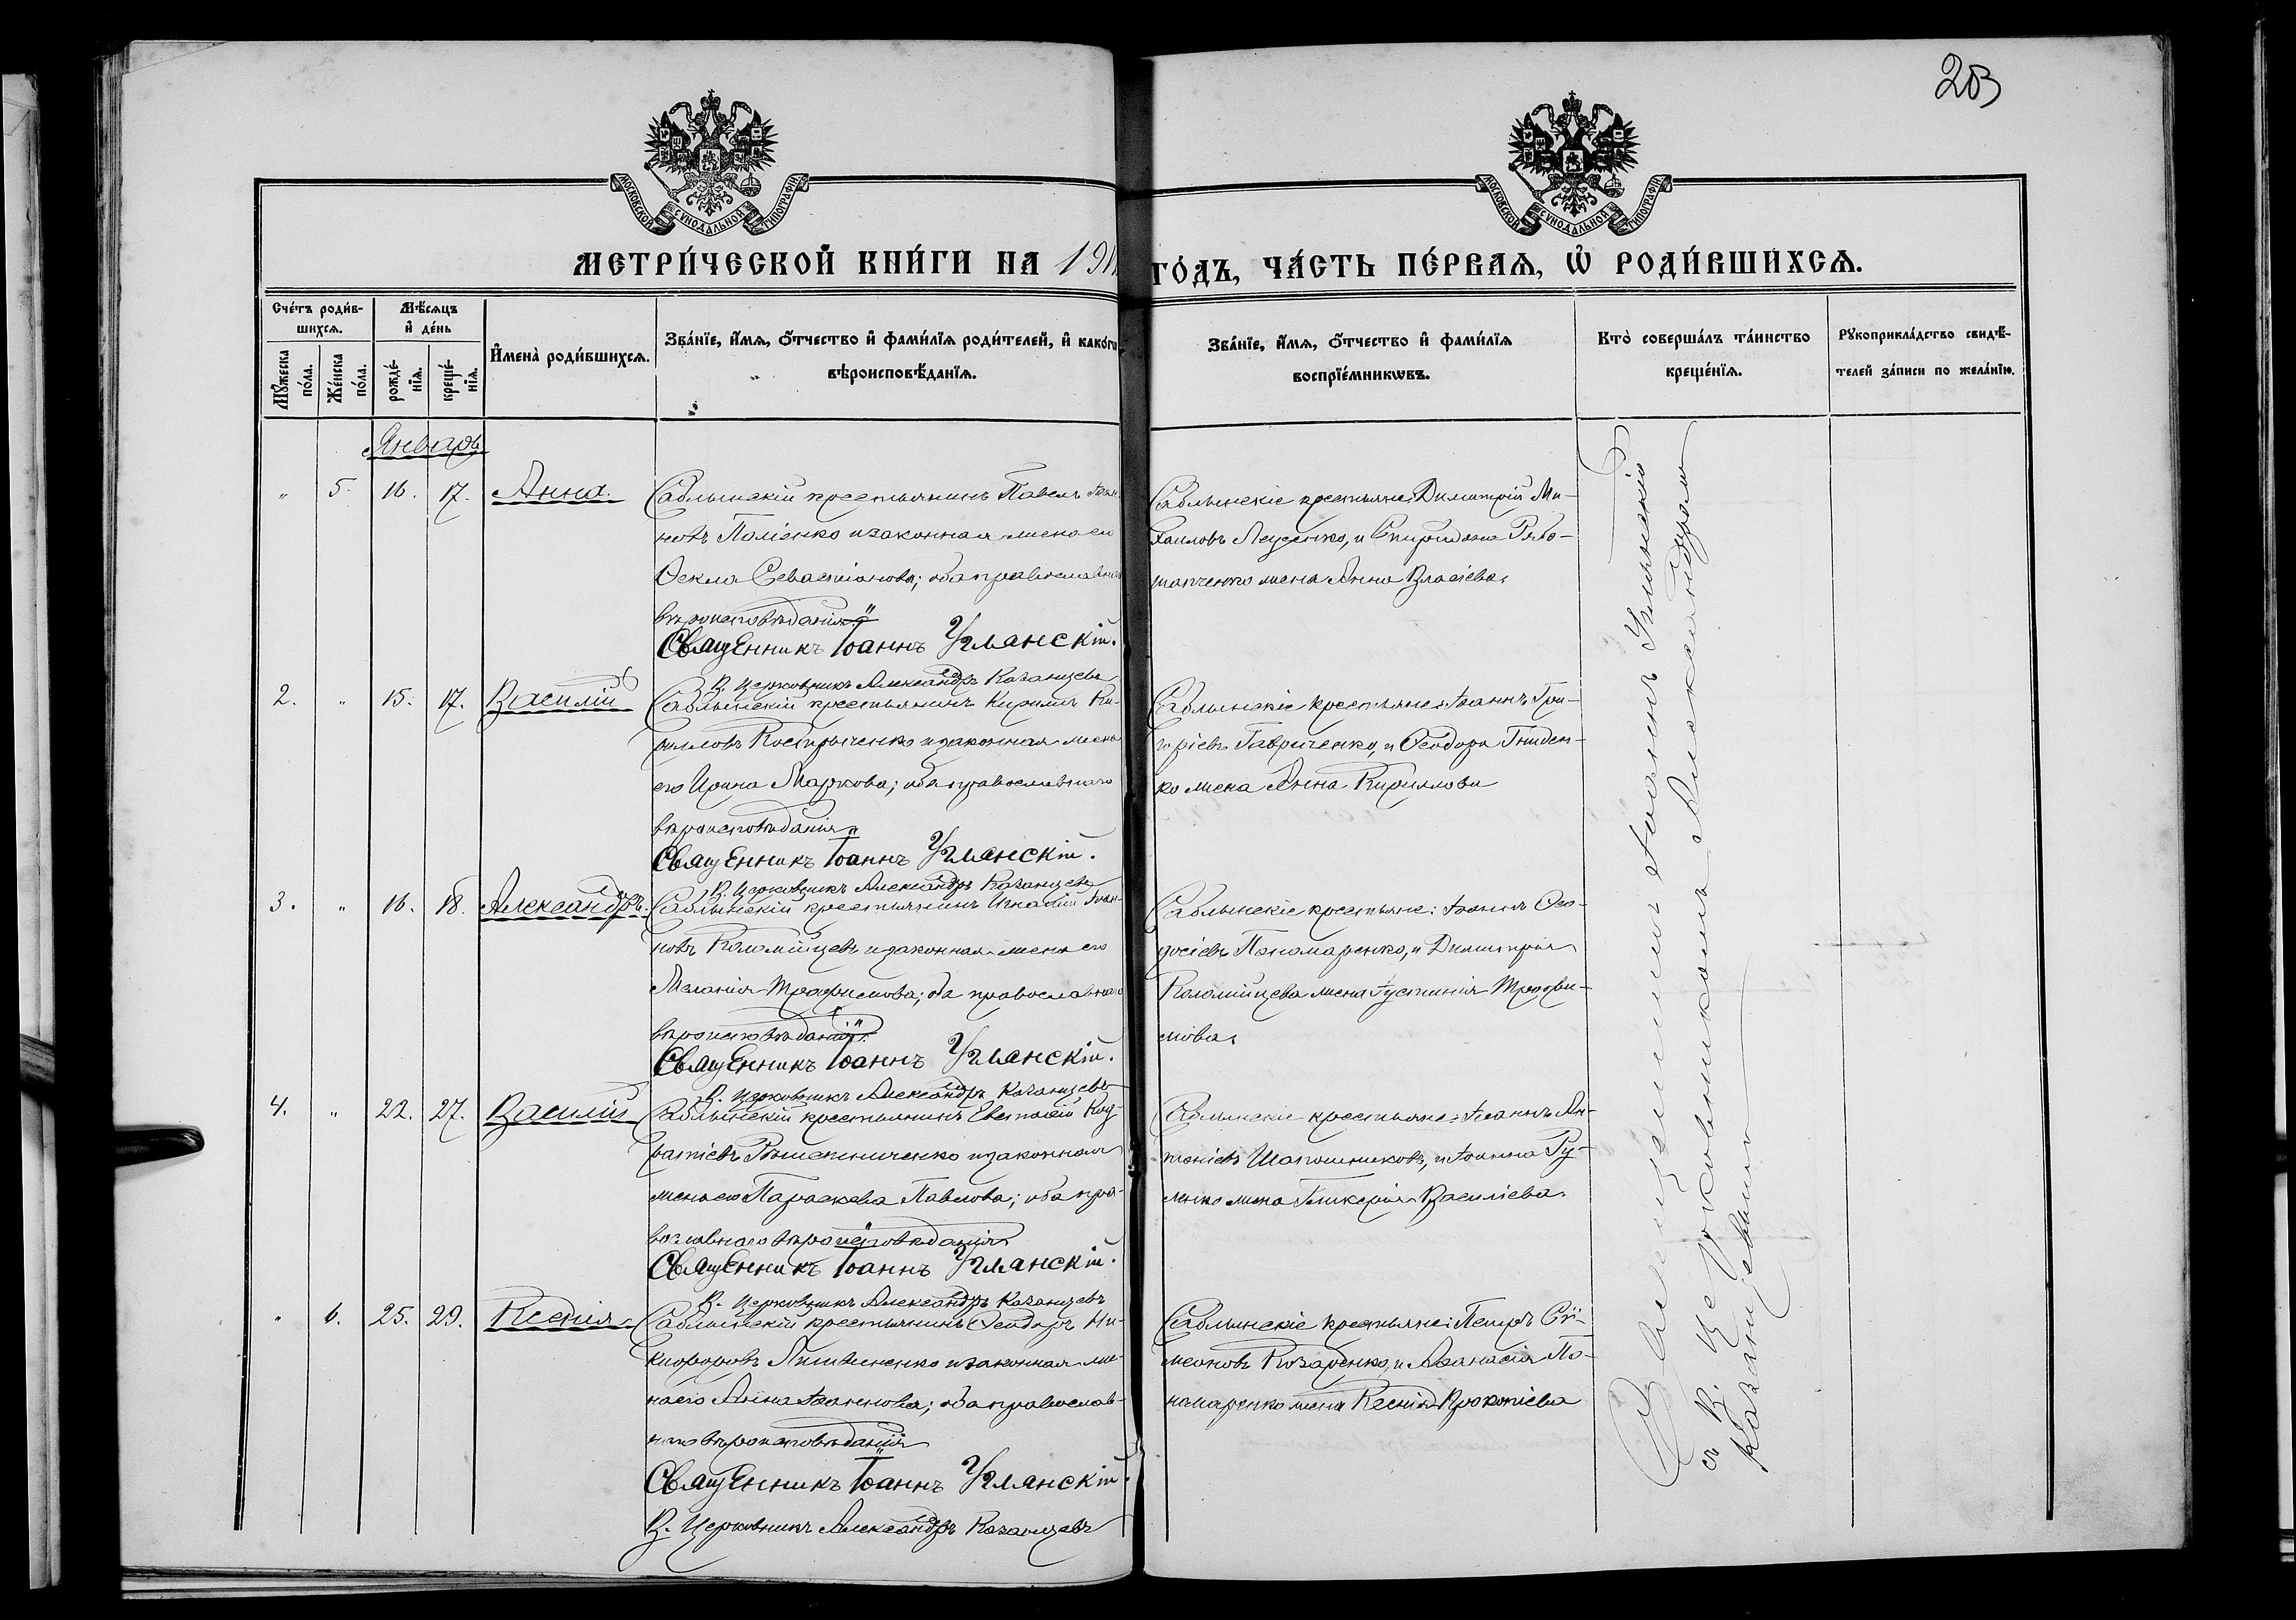 203
МОСКОВСКОЙ СѴНОДАЛЬНОЙ ТИПОГРАФІИ
МОСКОВСКОЙ СѴНОДАЛЬНОЙ ТИПОГРАФІИ
МЕТРИ́ЧЕСКОЙ КНИ́ГИ НА 191
ГО́ДЪ, ЧА́СТЬ ПЕ́РВАѦ, Ѽ РОДИ́ВШИХСѦ.
Сче́тъ роди́в-
шихсѧ.
Мꙋ́жеска по́ла.
Же́нска по́ла.
Мѣ́сѧцъ
и҆ де́нь
рожде́-нїѧ.
креще́-нїѧ.
И҆мена̀ роди́вшихсѧ.
Зва́нїе, и҆́мѧ, ѻ҆́тчество и҆ фами́лїѧ роди́телей, и҆ како́гѡ
вѣроисповѣ́данїѧ.
Зва́нїе, и҆́мѧ, ѻ҆́тчество и҆ фами́лїѧ
воспрїе́мникѡвъ.
Кто̀ соверша́лъ та́инство
креще́нїѧ.
Рꙋкоприкла́дство свидѣ́-
телей за́писи по жела́нїю.
Январь
" 5. 16. 17. Анна. Саблинскій крестьянинъ Павелъ Іоан-
новъ Поліенко и законная жена его
Ѳекла Севастіанова; оба православнаго
вѣроисповѣданія
Священникъ Іоаннъ Углянскій.
В. Церковникъ Александръ Казанцевъ
Саблинскіе крестьяне: Димитрій Ми-
хаиловъ Леуденко, и Спиридона Рябо-
шапченко жена Анна Власіева.
2. " 15. 17. Василій Саблинскій крестьянинъ Кириллъ Ки-
рилловъ Костыченко и законная жена
его Ирина Маркова; оба православнаго
вѣроисповѣданія
Священникъ Іоаннъ Углянскій.
В. Церковникъ Александръ Казанцевъ
Саблинскіе крестьяне: Іоаннъ Гри-
горіевъ Гавриченко, и Ѳеодора Гниден-
ко жена Анна Кириллова
3. " 16. 18. Александръ. Саблинскій крестьянинъ Игнатій Іоан-
новъ Коломійцевъ и законная жена его
Меланія Трофимова; оба православнаго
вѣроисповѣданія
Священникъ Іоаннъ Углянскій.
В. Церковникъ Александръ Казанцевъ
Саблинскіе крестьяне: Іоаннъ Ѳео-
досіевъ Пономаренко, и Димитрія
Коломійцева жена Іустинія Трофи-
мова.
4. " 22. 27. Василій Саблинскій крестьянинъ Евстафій Код-
ратіевъ Рѣшетниченко и законная
жена его Параскева Павлова; оба пра-
вославнаго вѣроисповѣданія
Священникъ Іоаннъ Углянскій.
В. Церковникъ Александръ Казанцевъ
Саблинскіе крестьяне: Іоаннъ Ан-
тоніевъ Шапошниковъ, и Іоанна
жена Гликерія Василіева.
" 6. 25. 29. Ксенія Саблинскій крестьянинъ Ѳеодоръ Ни-
кифоровъ Литвиненко и законная же-
на его Анна Іоаннова; оба православ-
наго вѣроисповѣданія
Священникъ Іоаннъ Углянскій.
В. Церковникъ Александръ Казанцевъ
Саблинскіе крестьяне: Петръ Сѵ-
меоновъ Козаренко, и Аѳанасія По-
номаренко жена Ксенія Прокопіева
Священникъ Іоаннъ Углянскій
съ В. Церковникомъ Александромъ
Казанцевымъ